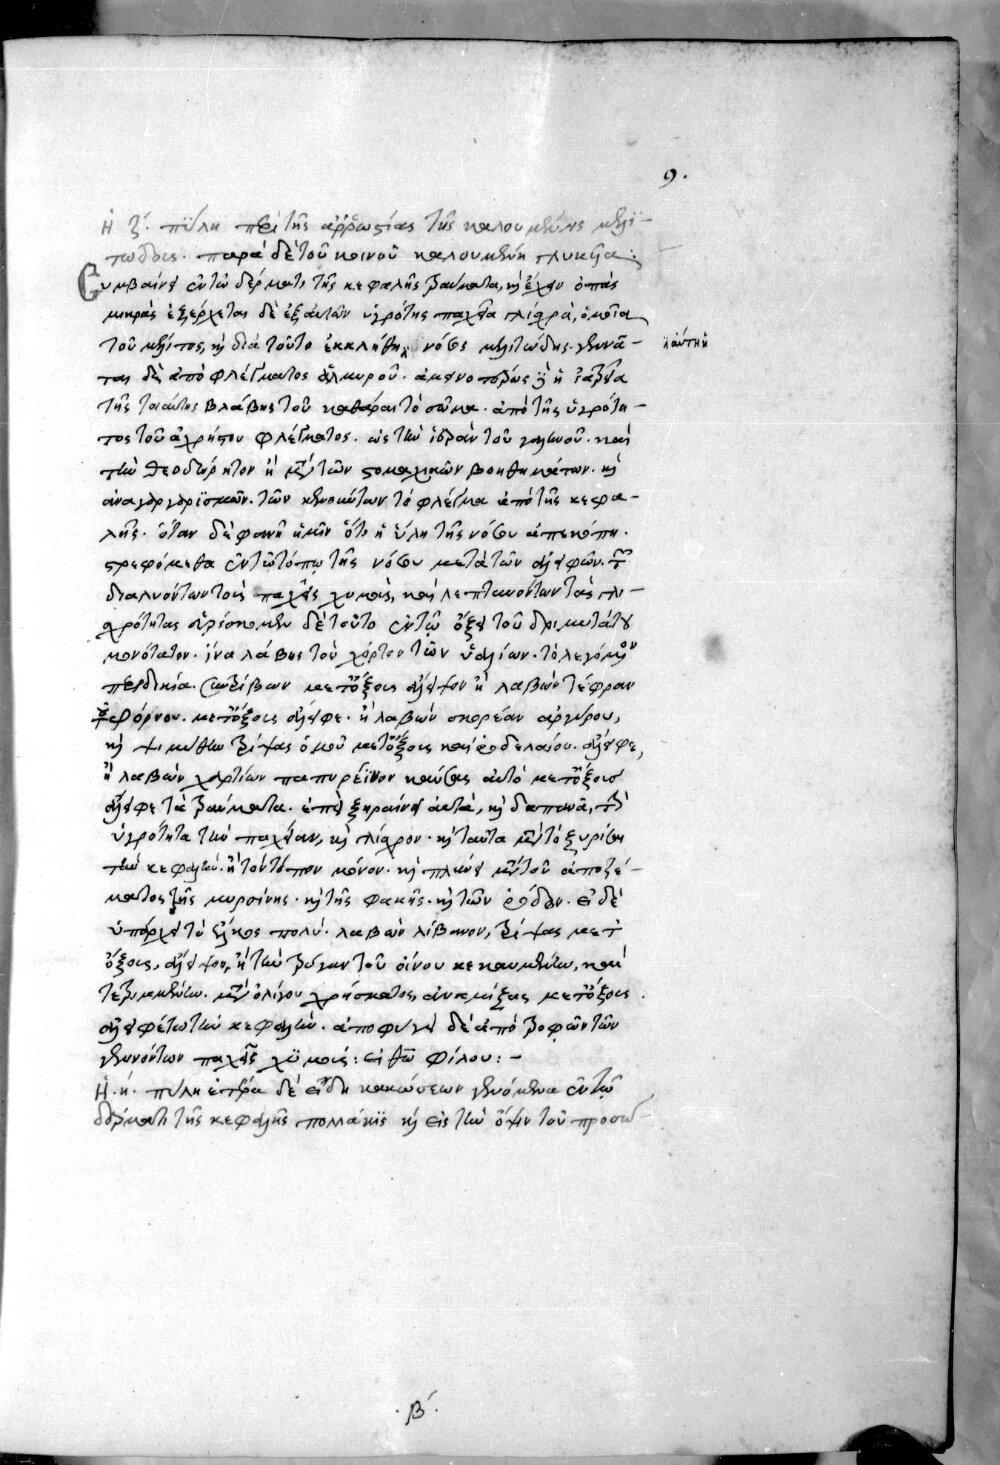 9.
Ἡ ζ΄. πύλη περὶ τῆς ἀρρωστίας τῆς καλουμένης μελι-
τώδους. παρὰ δὲ τοῦ κοινοῦ καλουμένη γλυκεῖα:
Συμβαίνει ἐν τῷ δέρματι τῆς κεφαλῆς τραύματα, κὴ ἔχειν ὀπὰς
μικρὰς ἐξέρχεται δὲ ἐξ αὐτῶν ὑγρότης παχεῖα γλίσχρα, ὁμοία
τοῦ μέλιτος, κὴ διὰ τοῦτο ἐκκλήθη νόσος μελιτώδης. γεννᾶ-
ται δὲ ἀπὸ φλέγματος ἁλμυροῦ. ἡ ἰατρεία
λ αὐτη
τῆς τοιαύτης βλάβης τοῦ καθάραι τὸ σῶμα. ἀπὸ τῆς ὑγρότη-
τος τοῦ ἀχρήστου φλέγματος. ὡς τὴν ἱερὰν τοῦ γαληνοῦ. καὶ
τὴν θεοδώρητον ἢ μετὰ τῶν στομαχικῶν βοηθημάτων. κὴ
ἀναγαργαρισμῶν. τῶν κενούντων τὸ φλέγμα ἀπὸ τῆς κεφα-
λῆς. ὅταν δὲ φανῆ ἡμῖν ὅτι ἡ ὕλη τῆς νόσου ἀπεκόπη.
στρεφόμεθα ἐν τῷ τόπῳ τῆς νόσου μετὰ τῶν ἀλειφῶν. τῶν
διαλυόντων τοὺς παχεῖς χυμοὺς, καὶ λεπτυνόντων τὰς γλι-
χρότητας εὑρίσκομεν δὲ τοῦτο ἐν τῷ ὄξει τοῦ δριμυτάτου
μονότατον. ἵνα λάβης τὸν χόρτον τῶν ὑαλίων. τὸ λεγόμενον
περδικία. συντρίβων μετ' ὄξους ἀλειψον ἢ λαβὼν τέφραν
μετ' ὄξους ἀλειφε. ἢ λαβὼν σκορέαν ἀργύρου,
κὴ ψιμυθίου τρίψας ὁμοῦ μετ' ὄξους καὶ ῥοδελαίου. ἀλειφε,
ἢ λαβὼν χαρτίων παπυρέϊνον καύσας αὐτὸ μετ' ὄξους
ἀλειφε τὰ τραύματα. ἐπεὶ ξηραίνει αὐτὰ, κὴ δαπανᾶ, τὴν
ὑγρότητα τὴν παχεῖαν, κὴ γλίσχρον. κὴ ταῦτα μετὰ τὸ ξυρίσαι
τὴν κεφαλὴν. ἢ τὸν τόπον μόνον. κὴ πλύνει μετὰ τοῦ ἀποζέ-
ματος τῆς μυρσίνης. κὴ τῆς φακῆς. κὴ τῶν ῥόδων. εἰ δὲ
ὑπάρχει τὸ ἕλκος πολύ. λαβὼν λίβανον, τρίψας μετ'
ὄξους, ἀλειψον, ἢ τὴν τρύγαν τοῦ οἴνου κεκαυμένην, καὶ
τετριμμένην. μετὰ ὀλίγου χρήσματος, ἀναμίξας μετ' ὄξους.
ἀλειφέτω τὴν κεφαλὴν. ἀποφυγεῖ δὲ ἀπὸ τροφῶν τῶν
γεννόντων παχεῖς χϋμούς:
Ἡ. η΄. πύλη ἑτέρα δὲ εἴδη κακώσεων γενόμενα ἐν τῷ
δέρματι τῆς κεφαλῆς πολλάκις κὴ εἰς τὴν ὄψιν τοῦ προσώ-
. β΄.